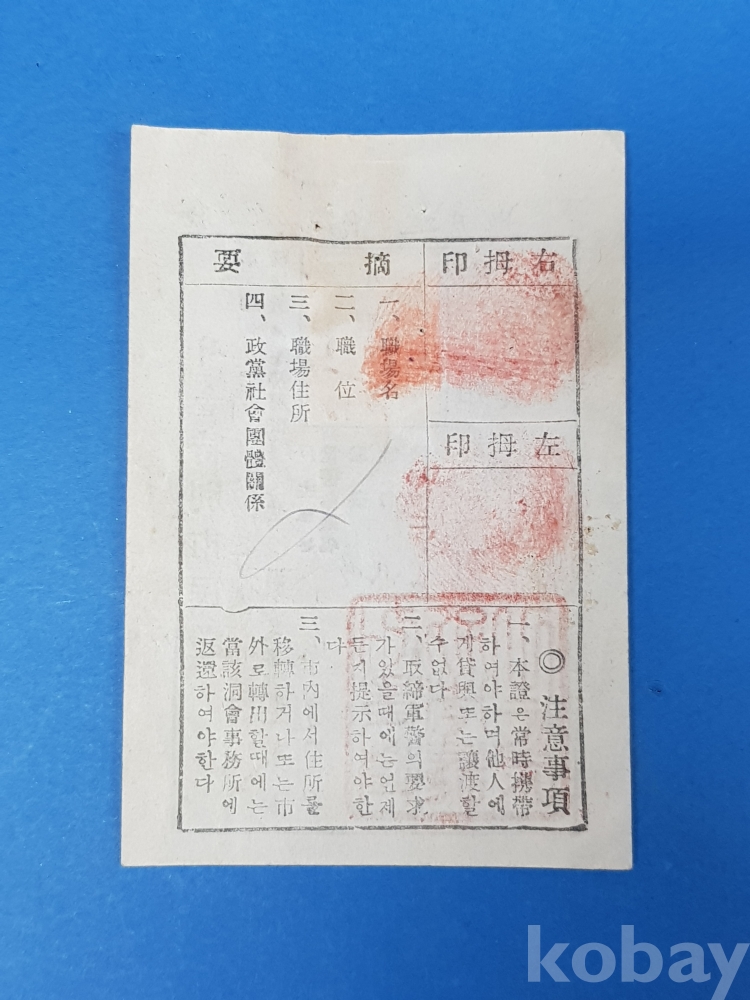 右拇印
左拇印
摘要
一、職場名
二、職位
三、職場住所
四、政黨社會團體關係
◎ 注意事項
一、本證은常時携帶
하여야하며他人에
게貸與또는讓渡할
수없다
二、取締軍警의要求
가있을때에는언제
든지提示하여야한
다
三、市內에서住所를
移轉하거나또는市
外로轉出할때에는
當該洞會事務所에
返還하여야한다
kobay